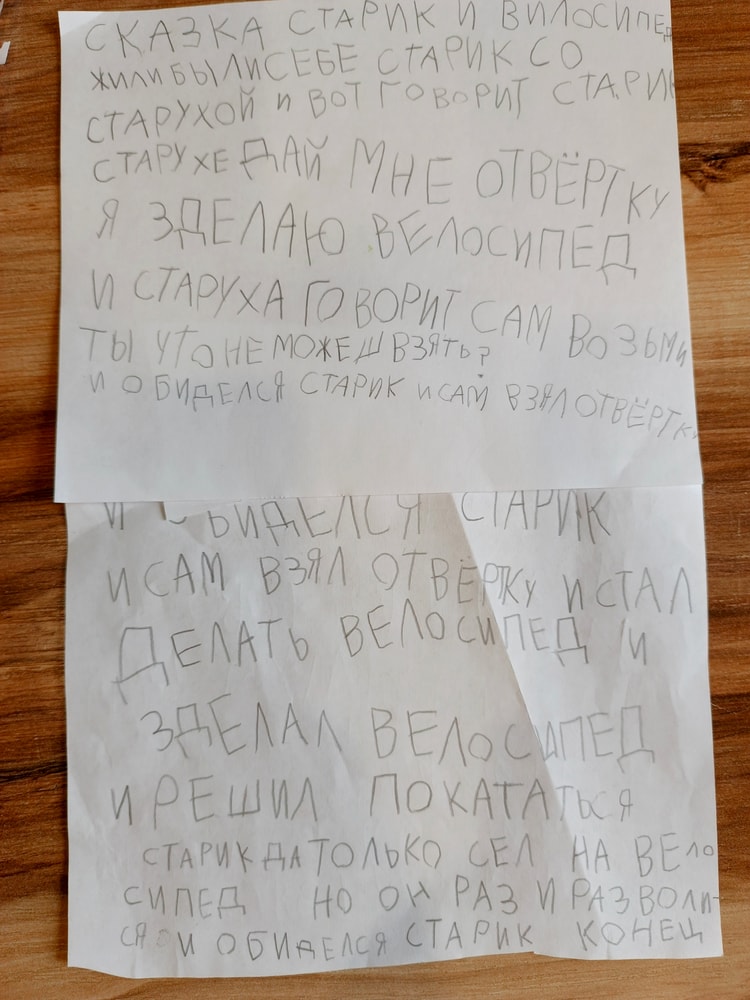 СКАЗКА СТАРИК И ВИЛОСИПЕД
ЖИЛИ БЫЛИ СЕБЕ СТАРИК СО
СТАРУХОЙ И ВОТ ГОВОРИТ СТАРИК
СТАРУХЕ ДАЙ МНЕ ОТВЁРТКУ
Я ЗДЕЛАЮ ВЕЛОСИПЕД
И СТАРУХА ГОВОРИТ САМ ВОЗЬМИ
ТЫ ЧТО НЕ МОЖЕШ ВЗЯТЬ?
И ОБИДЕЛСЯ СТАРИК И САМ ВЗЯЛ ОТВЁРТКУ
И ОБИДЕЛСЯ СТАРИК
И САМ ВЗЯЛ ОТВЁРТКУ И СТАЛ
ДЕЛАТЬ ВЕЛОСИПЕД И
ЗДЕЛАЛ ВЕЛОСИПЕД
И РЕШИЛ ПОКАТАТЬСЯ
СТАРИК ДА ТОЛЬКО СЕЛ НА ВЕЛО
СИПЕД НО ОН РАЗ И РАЗВОЛИ-
СЯ И ОБИДЕЛСЯ СТАРИК КОНЕЦ